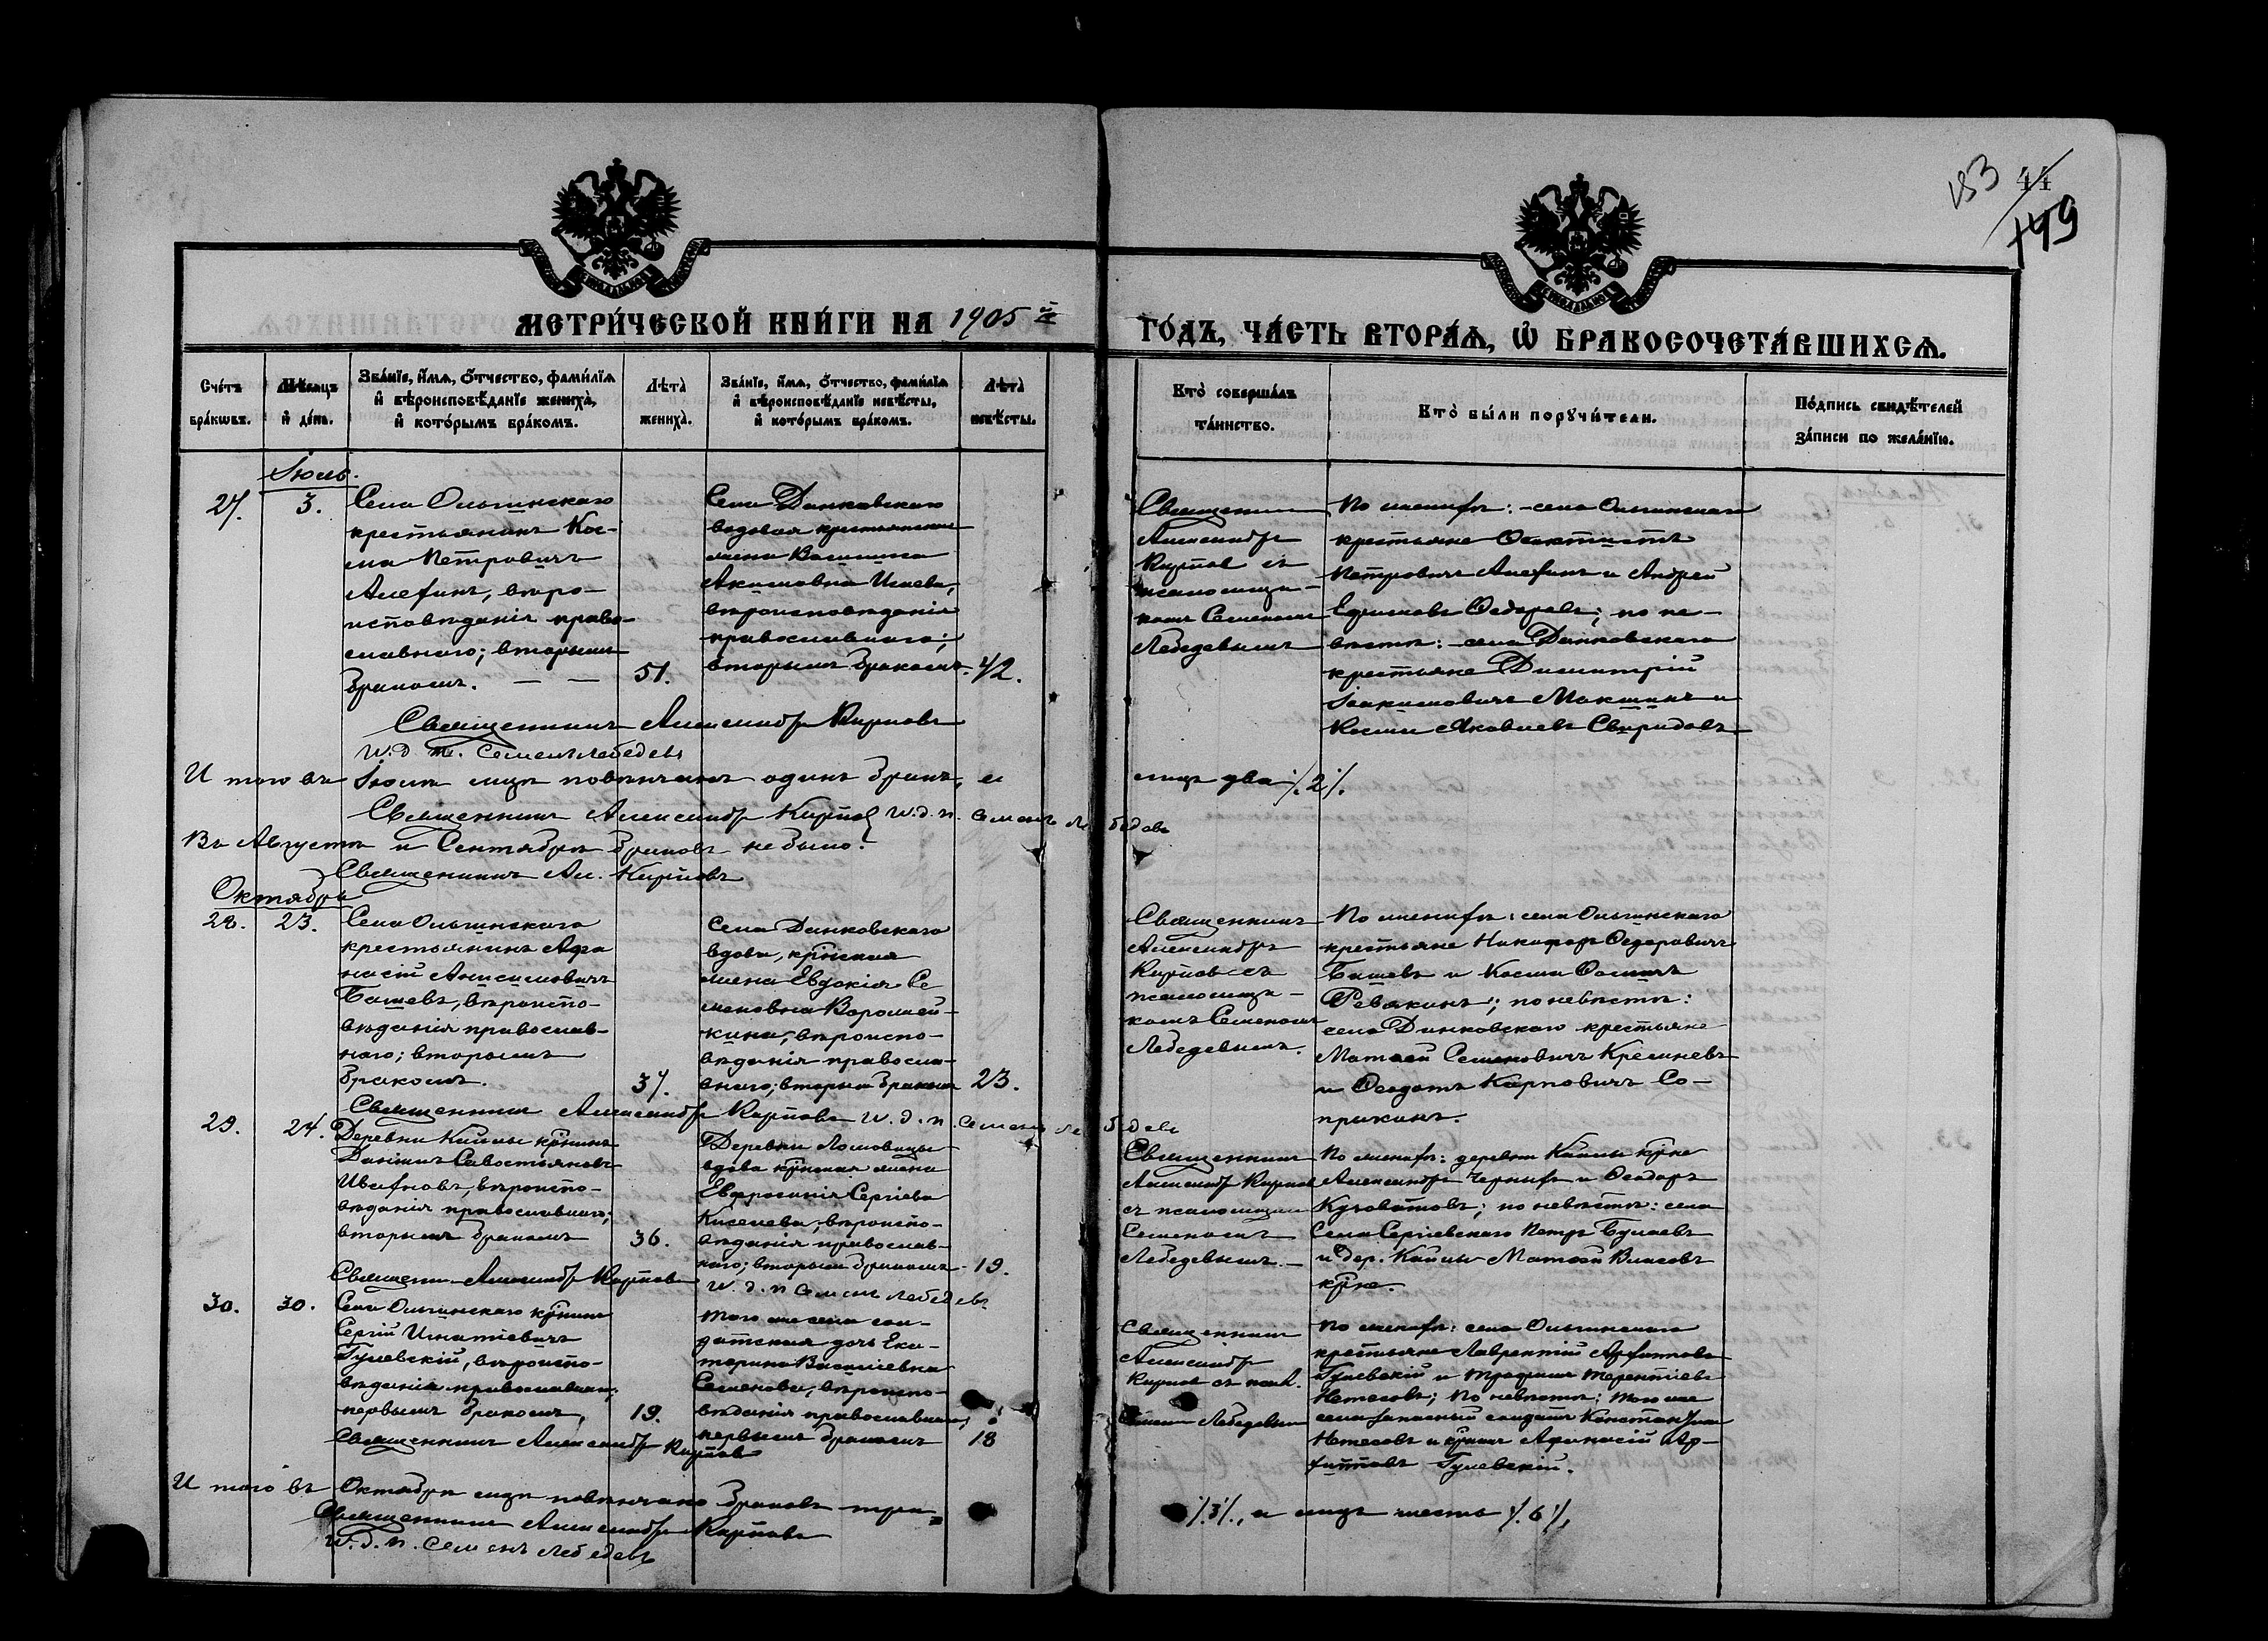 183 44
149
МЕТРИ́ЧЕСКОЙ КНИ́ГИ НА 1905 й
ГО́ДЪ, ЧА́СТЬ ВТОРА́Я, Ѡ БРАКОСОЧЕТА́ВШИХСЯ.
Сче́тъ бра́кѡвъ.
Мѣ́сяцъ и де́нь.
Зва́нїе, и́мя, ѻ́тчество, фами́лїя и вѣроисповѣ́данїе жениха̀, и кото́рымъ бра́комъ.
Лѣ́та жениха̀.
Зва́нїе, и́мя, ѻ́тчество, фами́лїя и вѣроисповѣ́данїе невѣ́сты, и кото́рымъ бра́комъ.
Лѣ́та невѣ́сты.
Кто̀ соверша́лъ та́инство.
Кто̀ бы́ли порꙋчи́тели.
По́дпись свидѣ́телей за́писи по жела́нїю.
Іюль.
27. 3.
Села Ольгинскаго
крестьянинъ Кос-
ма Петровичъ
Алехинъ, вѣро-
исповѣданія право-
славнаго; вторымъ
бракомъ. — — 51.
Села Данковскаго
вдовая крестьянская
жена Василиса
Акимовна Исаева,
вѣроисповѣданія
православнаго;
вторымъ бракомъ. 42.
Священникъ
Александръ
Карповъ съ
псаломщи-
комъ Семеномъ
Лебедевымъ
По женихѣ: села Ольгинскаго
крестьяне Ѳеоктистъ
Петровичъ Алехинъ и Андрей
Ефимовъ Ѳедоровъ; по не-
вѣстѣ: села Данковскаго
крестьяне Димитрій
Іоакимовичъ Макшинъ и
Косма Яковлевъ Свиридовъ
Священникъ Александръ Карповъ
и. д. п. Семенъ Лебедевъ
И того въ Іюлѣ мцѣ повѣнчанъ одинъ бракъ, а
лицъ два /.2./.
Священникъ Александръ Карповъ и. д. п. Семенъ Лебедевъ
Въ Августѣ и Сентябрѣ браковъ не было.
Священникъ Ал. Карповъ
Октябрь
28. 23.
Села Ольгинскаго
крестьянинъ Афа
насій Анисимовичъ
Башевъ, вѣроиспо-
вѣданія православ-
наго; вторымъ
бракомъ. 37.
Села Данковскаго
вдова, крѣнская
жена Евдокія Се
меновна Воромей-
кина, вѣроиспо-
вѣданія правосла-
внаго; вторымъ бракомъ 23.
Священникъ
Александръ
Карповъ съ
псаломщи-
комъ Семеномъ
Лебедевымъ.
По женихѣ: села Ольгинскаго
крестьяне Никифоръ Ѳедоровичъ
Башевъ и Косма Ѳоминъ
Ревякинъ; по невѣстѣ:
села Данковскаго крестьяне
Матвѣй Семеновичъ Кремневъ
и Ѳеодотъ Карповичъ Со-
прикинъ.
Священникъ Александръ Карповъ и. д. п. Семенъ Лебедевъ
29. 24.
Деревни Каймы крнинъ
Даніилъ Савостьяновъ
вѣроиспо-
вѣданія православнаго;
вторымъ бракомъ 36.
Деревни Ломовицы
вдова крнская жена
Евфросинія Сергіева
Киселева, вѣроиспо-
вѣданія православ-
наго; вторымъ бракомъ 19.
Священникъ
Александръ Карповъ
съ псаломщикомъ
Семеномъ
Лебедевымъ.
По женихѣ: деревни Каймы крне
Александръ и Ѳеодоръ
по невѣстѣ: села
Села Сергіевскаго Петръ Булаевъ
и дер. Каймы Матвѣй Власовъ
крне.
Священникъ Александръ Карповъ
и. д. п. Семенъ Лебедевъ
30. 30.
Села Ольгинскаго крнинъ
Сергій Игнатіевичъ
Гулевскій, вѣроиспо-
вѣданія православнаго;
первымъ бракомъ, 19.
Того же села сол-
датская дочь Ека-
терина Васильевна
Семенова, вѣроиспо-
вѣданія православнаго;
первымъ бракомъ 18
Священникъ
Александръ
Карповъ съ псал.
Семеномъ Лебедевымъ
По женихѣ: села Ольгинскаго
крестьяне Лаврентій Архиповъ
Гулевскій и Трофимъ Терентіевъ
Нетесовъ; по невѣстѣ: того же
села запасный солдатъ Константинъ
Нетесовъ и крнинъ Афанасій Ар-
хиповъ Гулевскій.
Священникъ Александръ Карповъ
И того въ Октябрѣ мцѣ повѣнчано браковъ три
/.3./., а лицъ шесть /.6./.
Священникъ Александръ Карповъ
и. д. п. Семенъ Лебедевъ